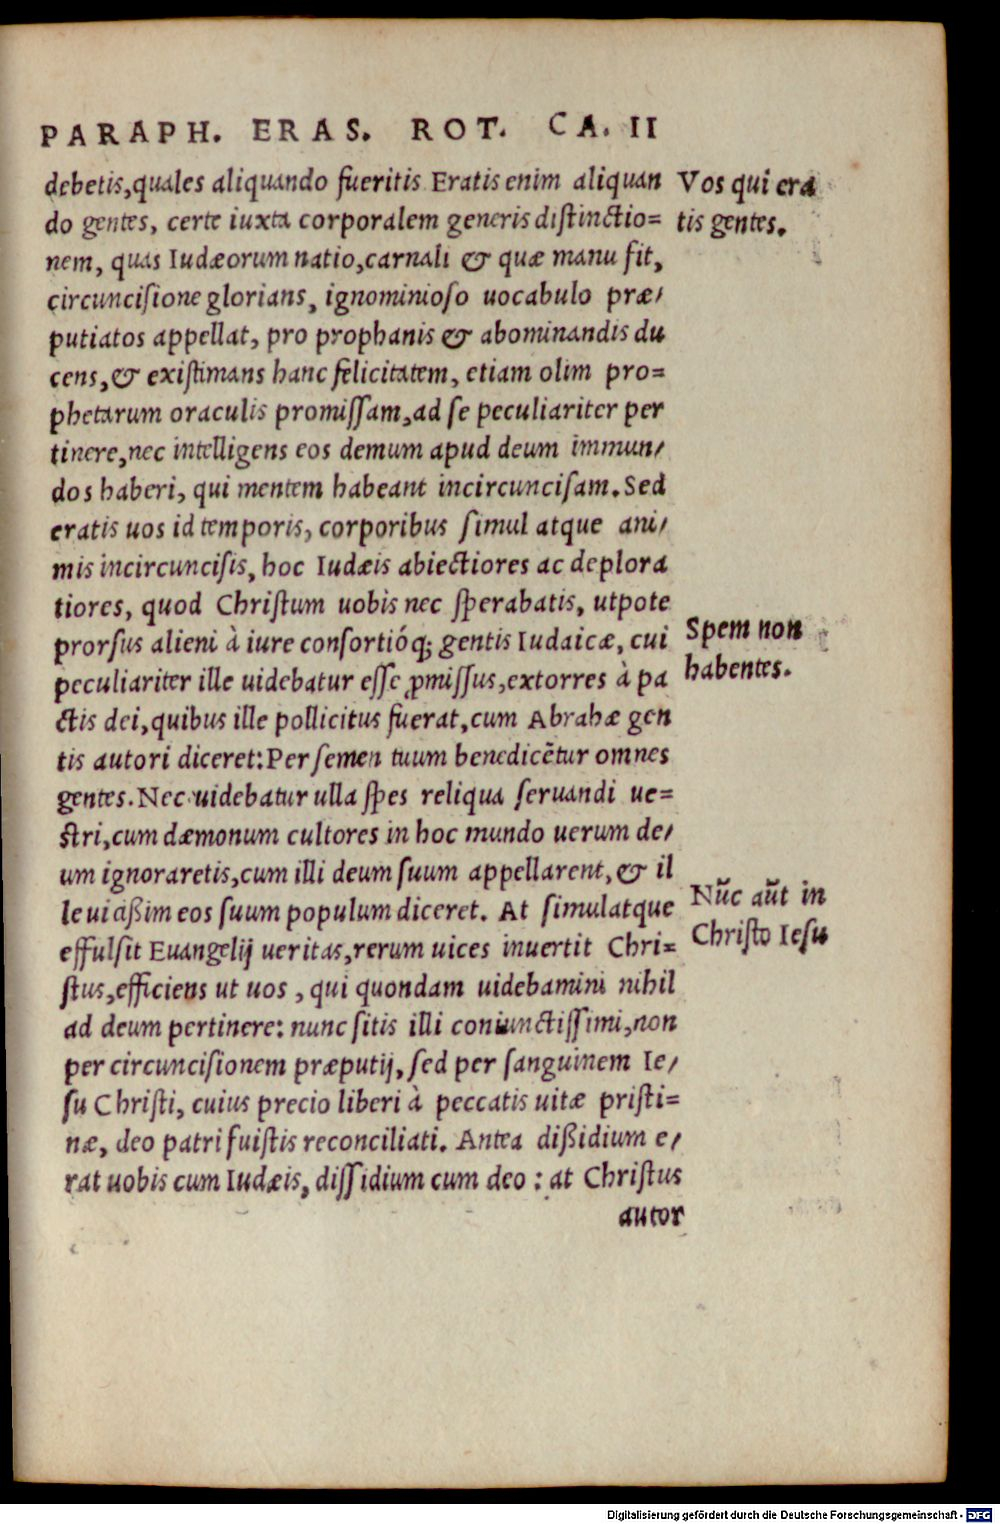 PARAPH. ERAS. ROT. CA. II
debetis,quales aliquando fueritis Eratis enim aliquan
do gentes, certe iuxta corporalem generis distinctio=
nem, quas Iudæorum natio,carnali & quæ manu fit,
circuncisione glorians, ignominioso uocabulo præ/
putiatos appellat, pro prophanis & abominandis du
cens,& existimans hanc felicitatem, etiam olim pro=
phetarum oraculis promissam,ad se peculiariter per
tinere,nec intelligens eos demum apud deum immun/
dos haberi, qui mentem habeant incircuncisam.Sed
eratis uos id temporis, corporibus simul atque ani/
mis incircuncisis, hoc Iudæis abiectiores ac deplora
tiores, quod Christum uobis nec sperabatis, utpote
prorsus alieni à iure consortióq; gentis Iudaicæ, cui
peculiariter ille uidebatur esse ꝓmissus,extorres à pa
ctis dei,quibus ille pollicitus fuerat,cum Abrahæ gen
tis autori diceret:Per semen tuum benedicẽtur omnes
gentes.Nec uidebatur ulla spes reliqua seruandi ue=
stri,cum dæmonum cultores in hoc mundo uerum de/
um ignoraretis,cum illi deum suum appellarent,& il
le uicißim eos suum populum diceret. At simulatque
effulsit Euangelij ueritas,rerum uices inuertit Chri=
stus,efficiens ut uos , qui quondam uidebamini nihil
ad deum pertinere: nunc sitis illi coniunctissimi,non
per circuncisionem præputij, sed per sanguinem Ie/
su Christi, cuius precio liberi à peccatis uitæ pristi=
næ, deo patri fuistis reconciliati. Antea dißidium e/
rat uobis cum Iudæis, dissidium cum deo : at Christus
autor
Vos qui era
tis gentes.
Spem non
habentes.
Nũc aũt in
Christo Iesu
Digitalisierung gefördert durch die Deutsche Forschungsgemeinschaft - DFG